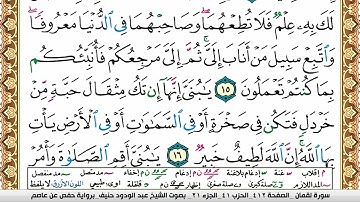 لَكَ بِهِۦ عِلْمٌ فَلَا تُطِعْهُمَا وَصَاحِبْهُمَا فِى ٱلدُّنْيَا مَعْرُوفًا
وَٱتَّبِعْ سَبِيلَ مَنْ أَنَابَ إِلَىَّ ثُمَّ إِلَىَّ مَرْجِعُكُمْ فَأُنَبِّئُكُم
بِمَا كُنتُمْ تَعْمَلُونَ ١٥ يَٰبُنَىَّ إِنَّهَآ إِن تَكُ مِثْقَالَ حَبَّةٍ مِّنْ
خَرْدَلٍ فَتَكُن فِى صَخْرَةٍ أَوْ فِى ٱلسَّمَٰوَٰتِ أَوْ فِى ٱلْأَرْضِ يَأْتِ
بِهَا ٱللَّهُ إِنَّ ٱللَّهَ لَطِيفٌ خَبِيرٌ ١٦ يَٰبُنَىَّ أَقِمِ ٱلصَّلَوٰةَ وَأْمُرْ
سورة لقمان - الصفحة ٤١٢ - الحزب ٤١ - الجزء ٢١ - بصوت الشيخ عبد الودود حنيف - برواية حفص عن عاصم